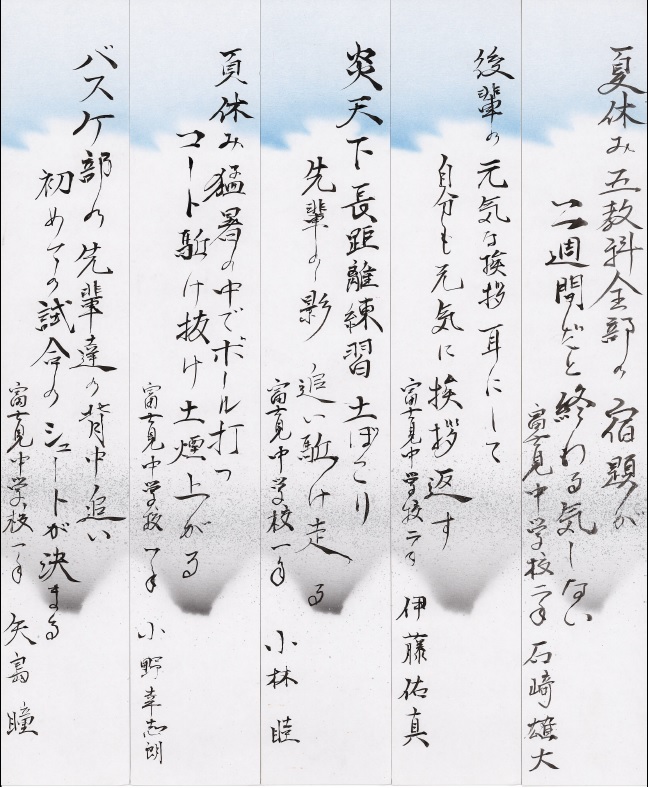 夏休み五教科全部の宿題が
二週間だと終わる気しない
富士見中学校二年 石崎雄大
後輩の元気な挨拶耳にして
自分も元気に挨拶返す
富士見中学校二年 伊藤佑真
炎天下長距離練習土ぼこり
先輩の影追い駈け走る
富士見中学校一年 小林睦
夏休み猛暑の中でボール打つ
コート駈け抜け土煙上がる
富士見中学校一年 小野幸志朗
バスケ部の先輩達の背中追い
初めての試合のシュートが決まる
富士見中学校一年 矢島瞳